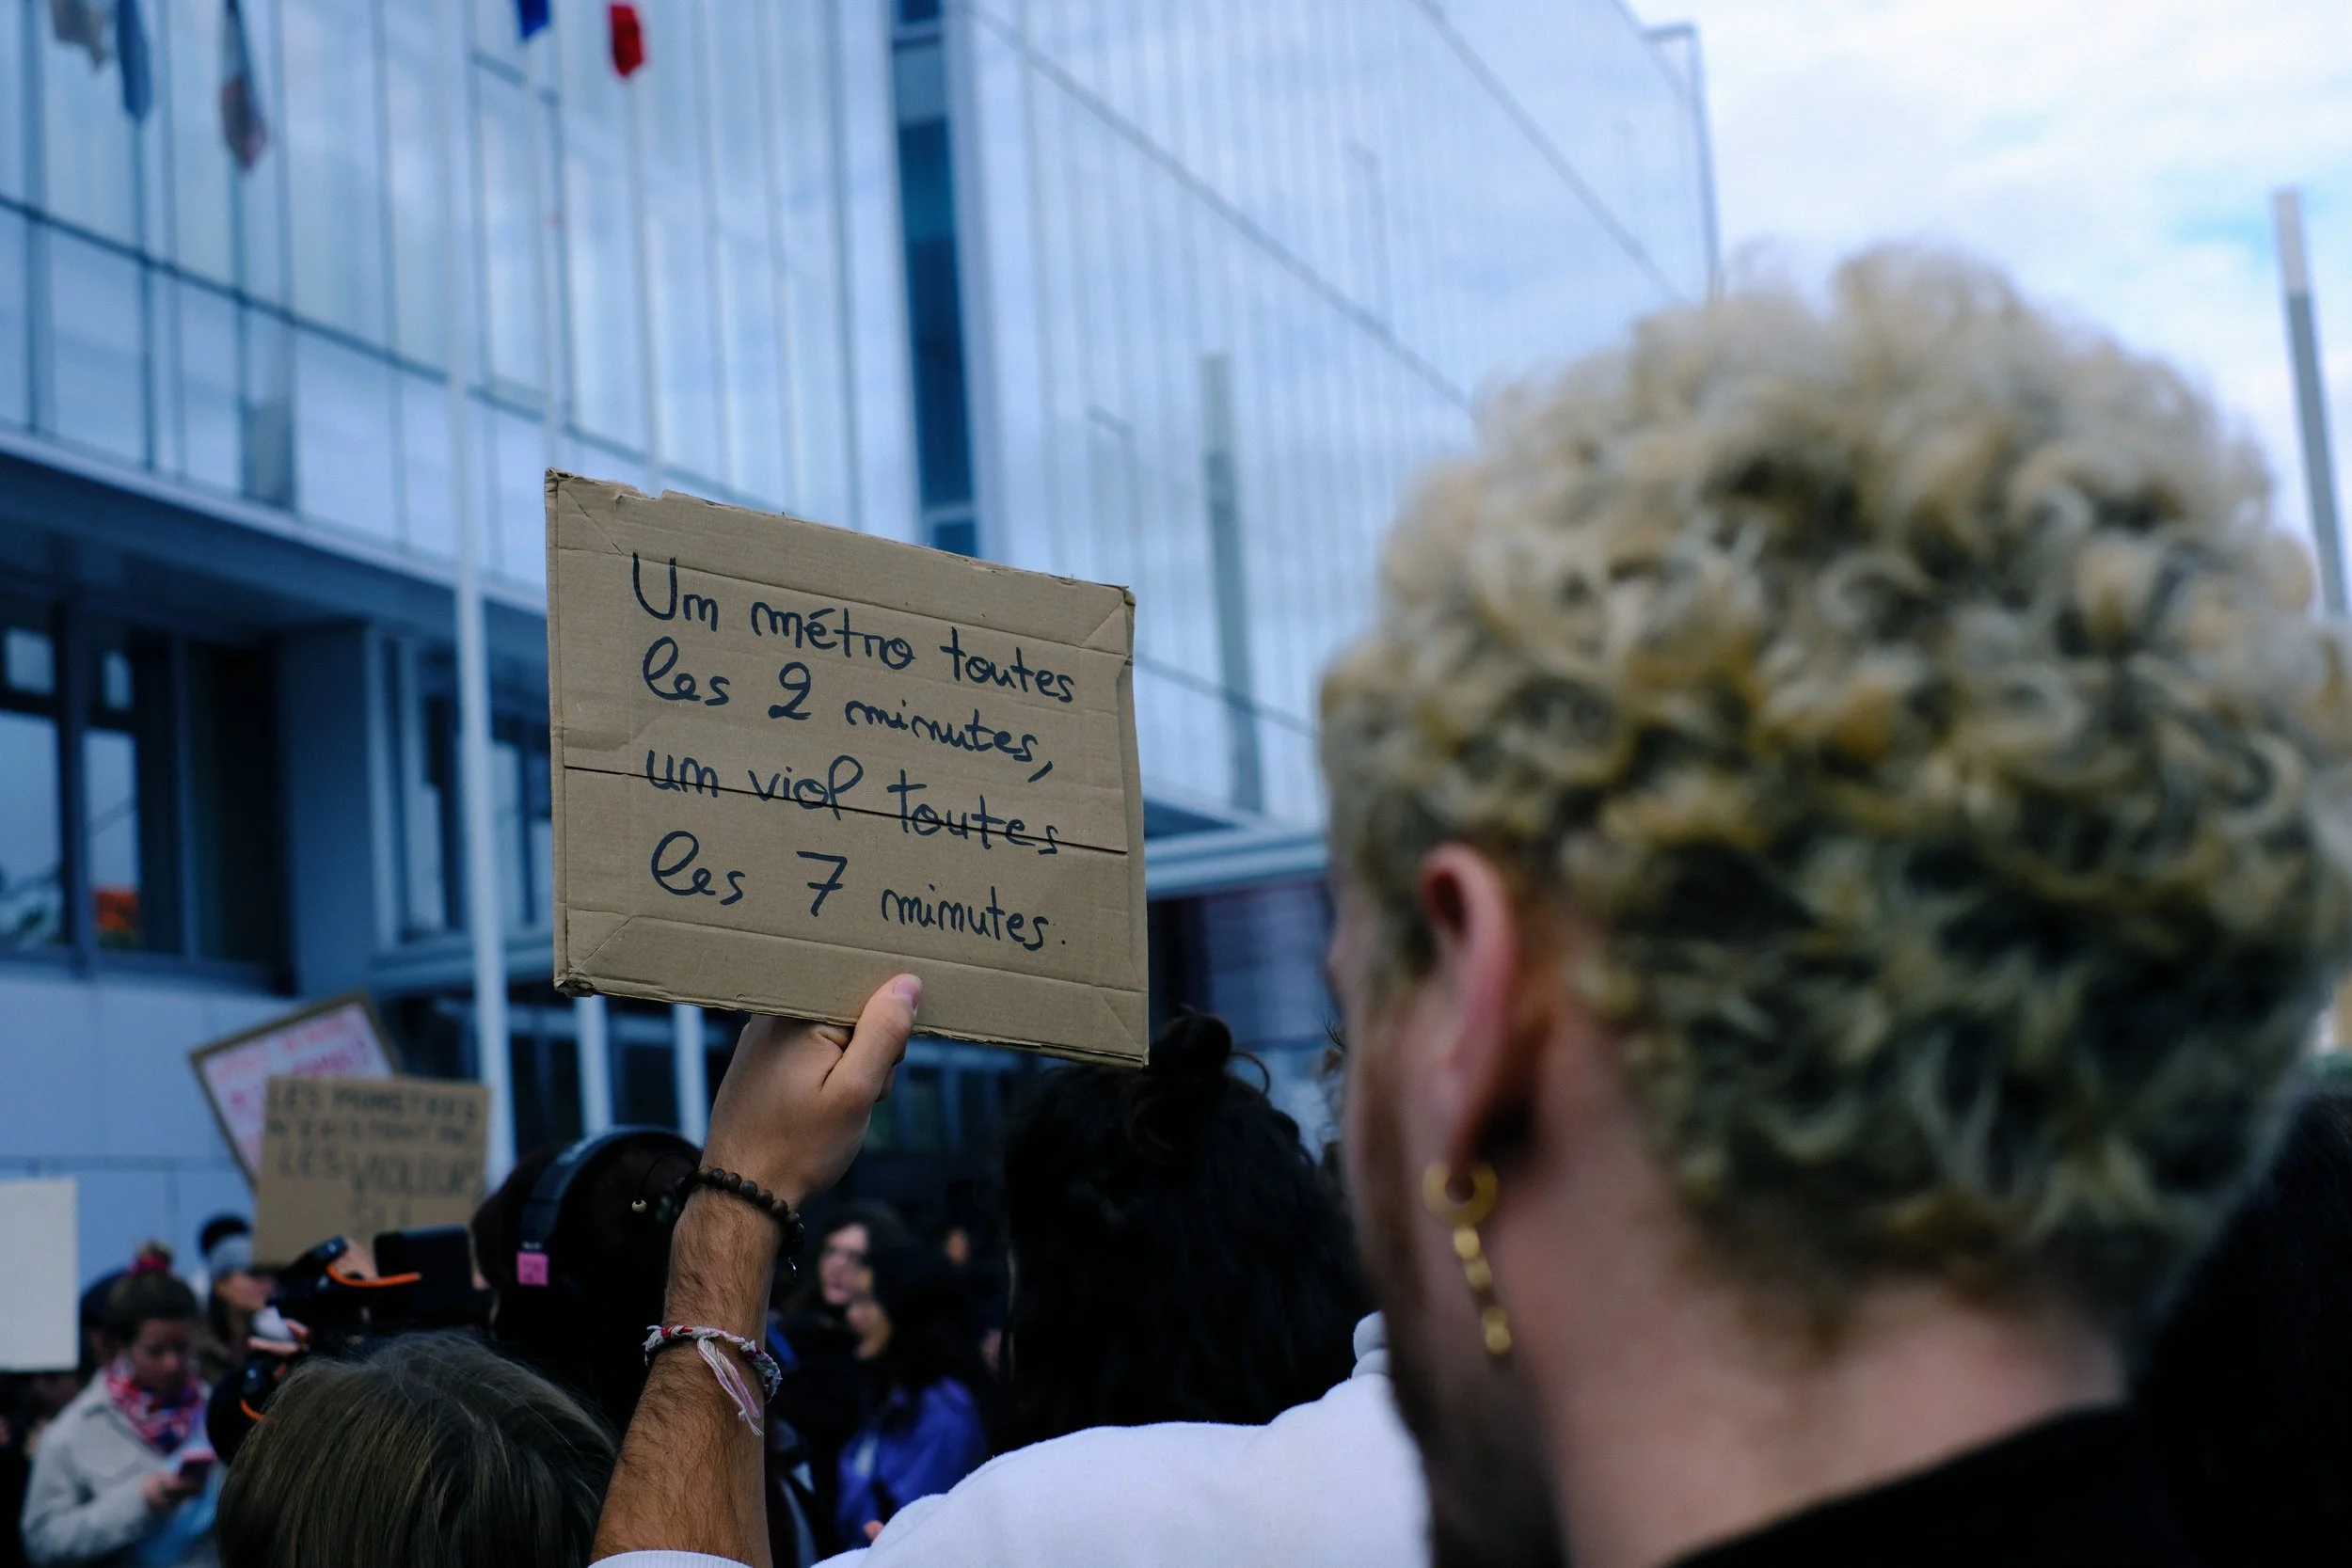 Un métro toutes
les 2 minutes,
un viol toutes
les 7 minutes.
LES MONSTRES
N'EXISTENT PAS
LES VIOLEURS
SI